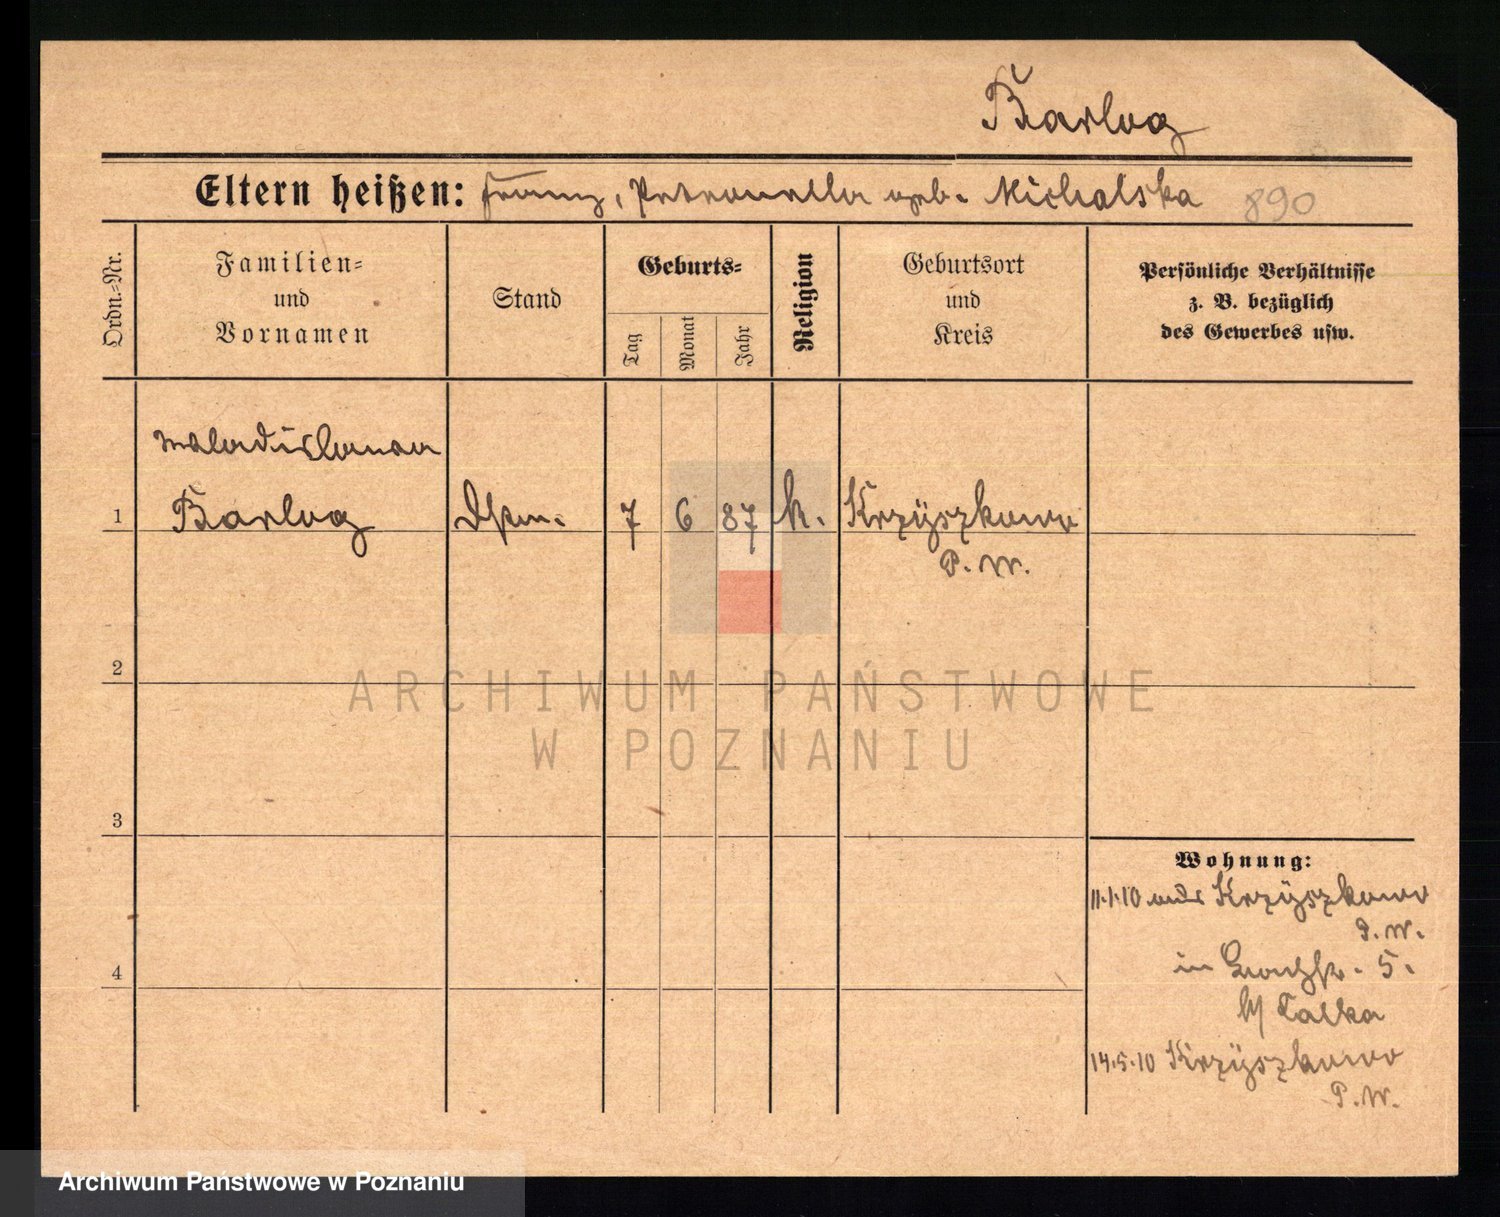 Barlog
Eltern heißen: Franz, Petronella geb. Michalska 890
Ordn.-Nr.
Familien-
und
Vornamen
Stand
Geburts-
Tag
Monat
Jahr
Religion
Geburtsort
und
Kreis
Persönliche Verhältnisse
z. B. bezüglich
des Gewerbes usw.
Wladislawa
1 Barlog 7 6 87 k. Krzÿszkowo
P. W.
2
3
4
Wohnung:
11.1.10 aus Krzÿszkowo
P. W.
in 5.
b/ Talka
14.5.10 Krzÿszkowo
P. W.
ARCHIWUM PAŃSTWOWE
W POZNANIU
Archiwum Państwowe w Poznaniu